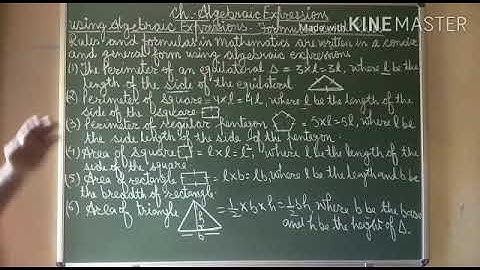 Ch.- Algebraic Expressions
using Algebraic Expressions - Formulas
Made with KINEMASTER
Rules and formulas in mathematics are written in a concise
and general form using algebraic expressions
1) The Perimeter of an equilateral Δ = 3×l=3l, where l be the
length of the side of the equilateral
(2) Perimeter of square = 4×l = 4l, where l be the length of the
side of the square
(3) Perimeter of regular pentagon = 5×l=5l, where l be
the side length of the side of the pentagon.
(4) Area of square = l×l=l², where l be the length of the
side of the square
(5) Area of rectangle = l×b=lb, where l be the length and b be
the breadth of rectangle.
(6) Area of triangle h b = 1/2 ×b×h = 1/2 bh, where b be the base
and h be the height of Δ.